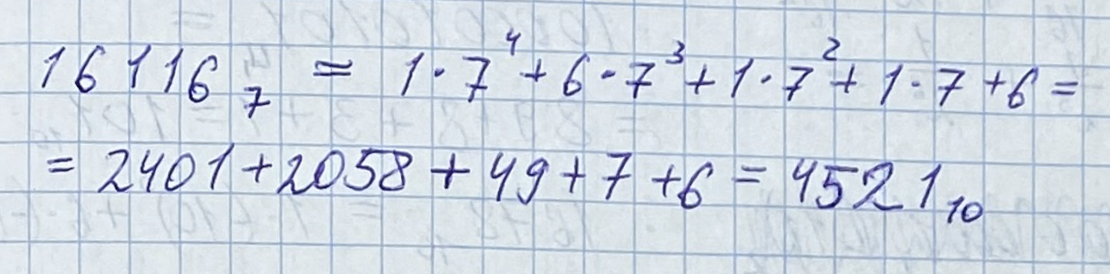 16116₇ = 1·7⁴+6·7³+1·7²+1·7+6=
=2401+2058+49+7+6=4521₁₀